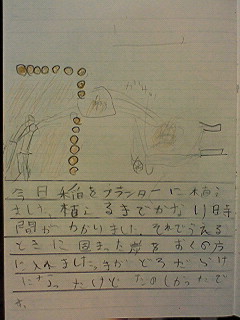 今日稲をプランターに植え
ました。植えるまでかなり時
間がかかりました。それでうえる
ときに固まった をおくの方
に入れました。手がどろだらけ
になったけどたのしかったで
す。